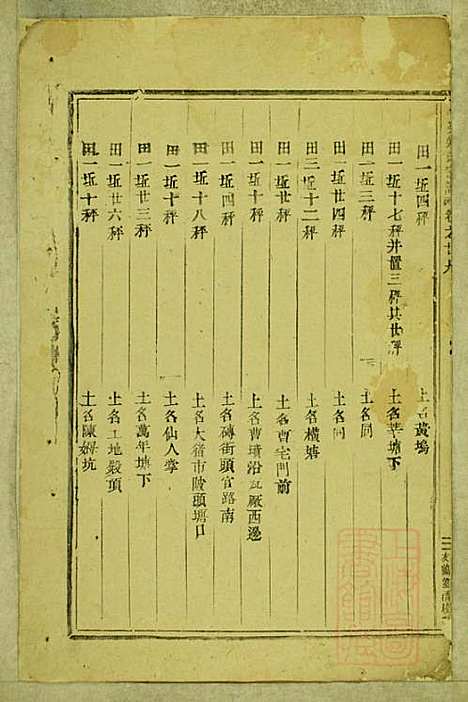 卷之廿九
田一坵四秤 土名黃塢
田一坵十七秤井置三秤共廿秤 土名莘塘下
田一坵三秤 土名同
田一坵廿四秤 土名同
田三坵十二秤 土名橫塘
田一坵十秤 土名曹宅門前
田一坵十秤 土名曹墳沿瓦廠西邊
田一坵四秤 土名磚街頭官路南
田一坵十八秤 土名大猪市陂頭塘口
田一坵十秤 土名仙人掌
田一坵廿三秤 土名萬年塘下
田一坵廿六秤 土名土地殿頂
田一坵十秤 土名陳婦坑